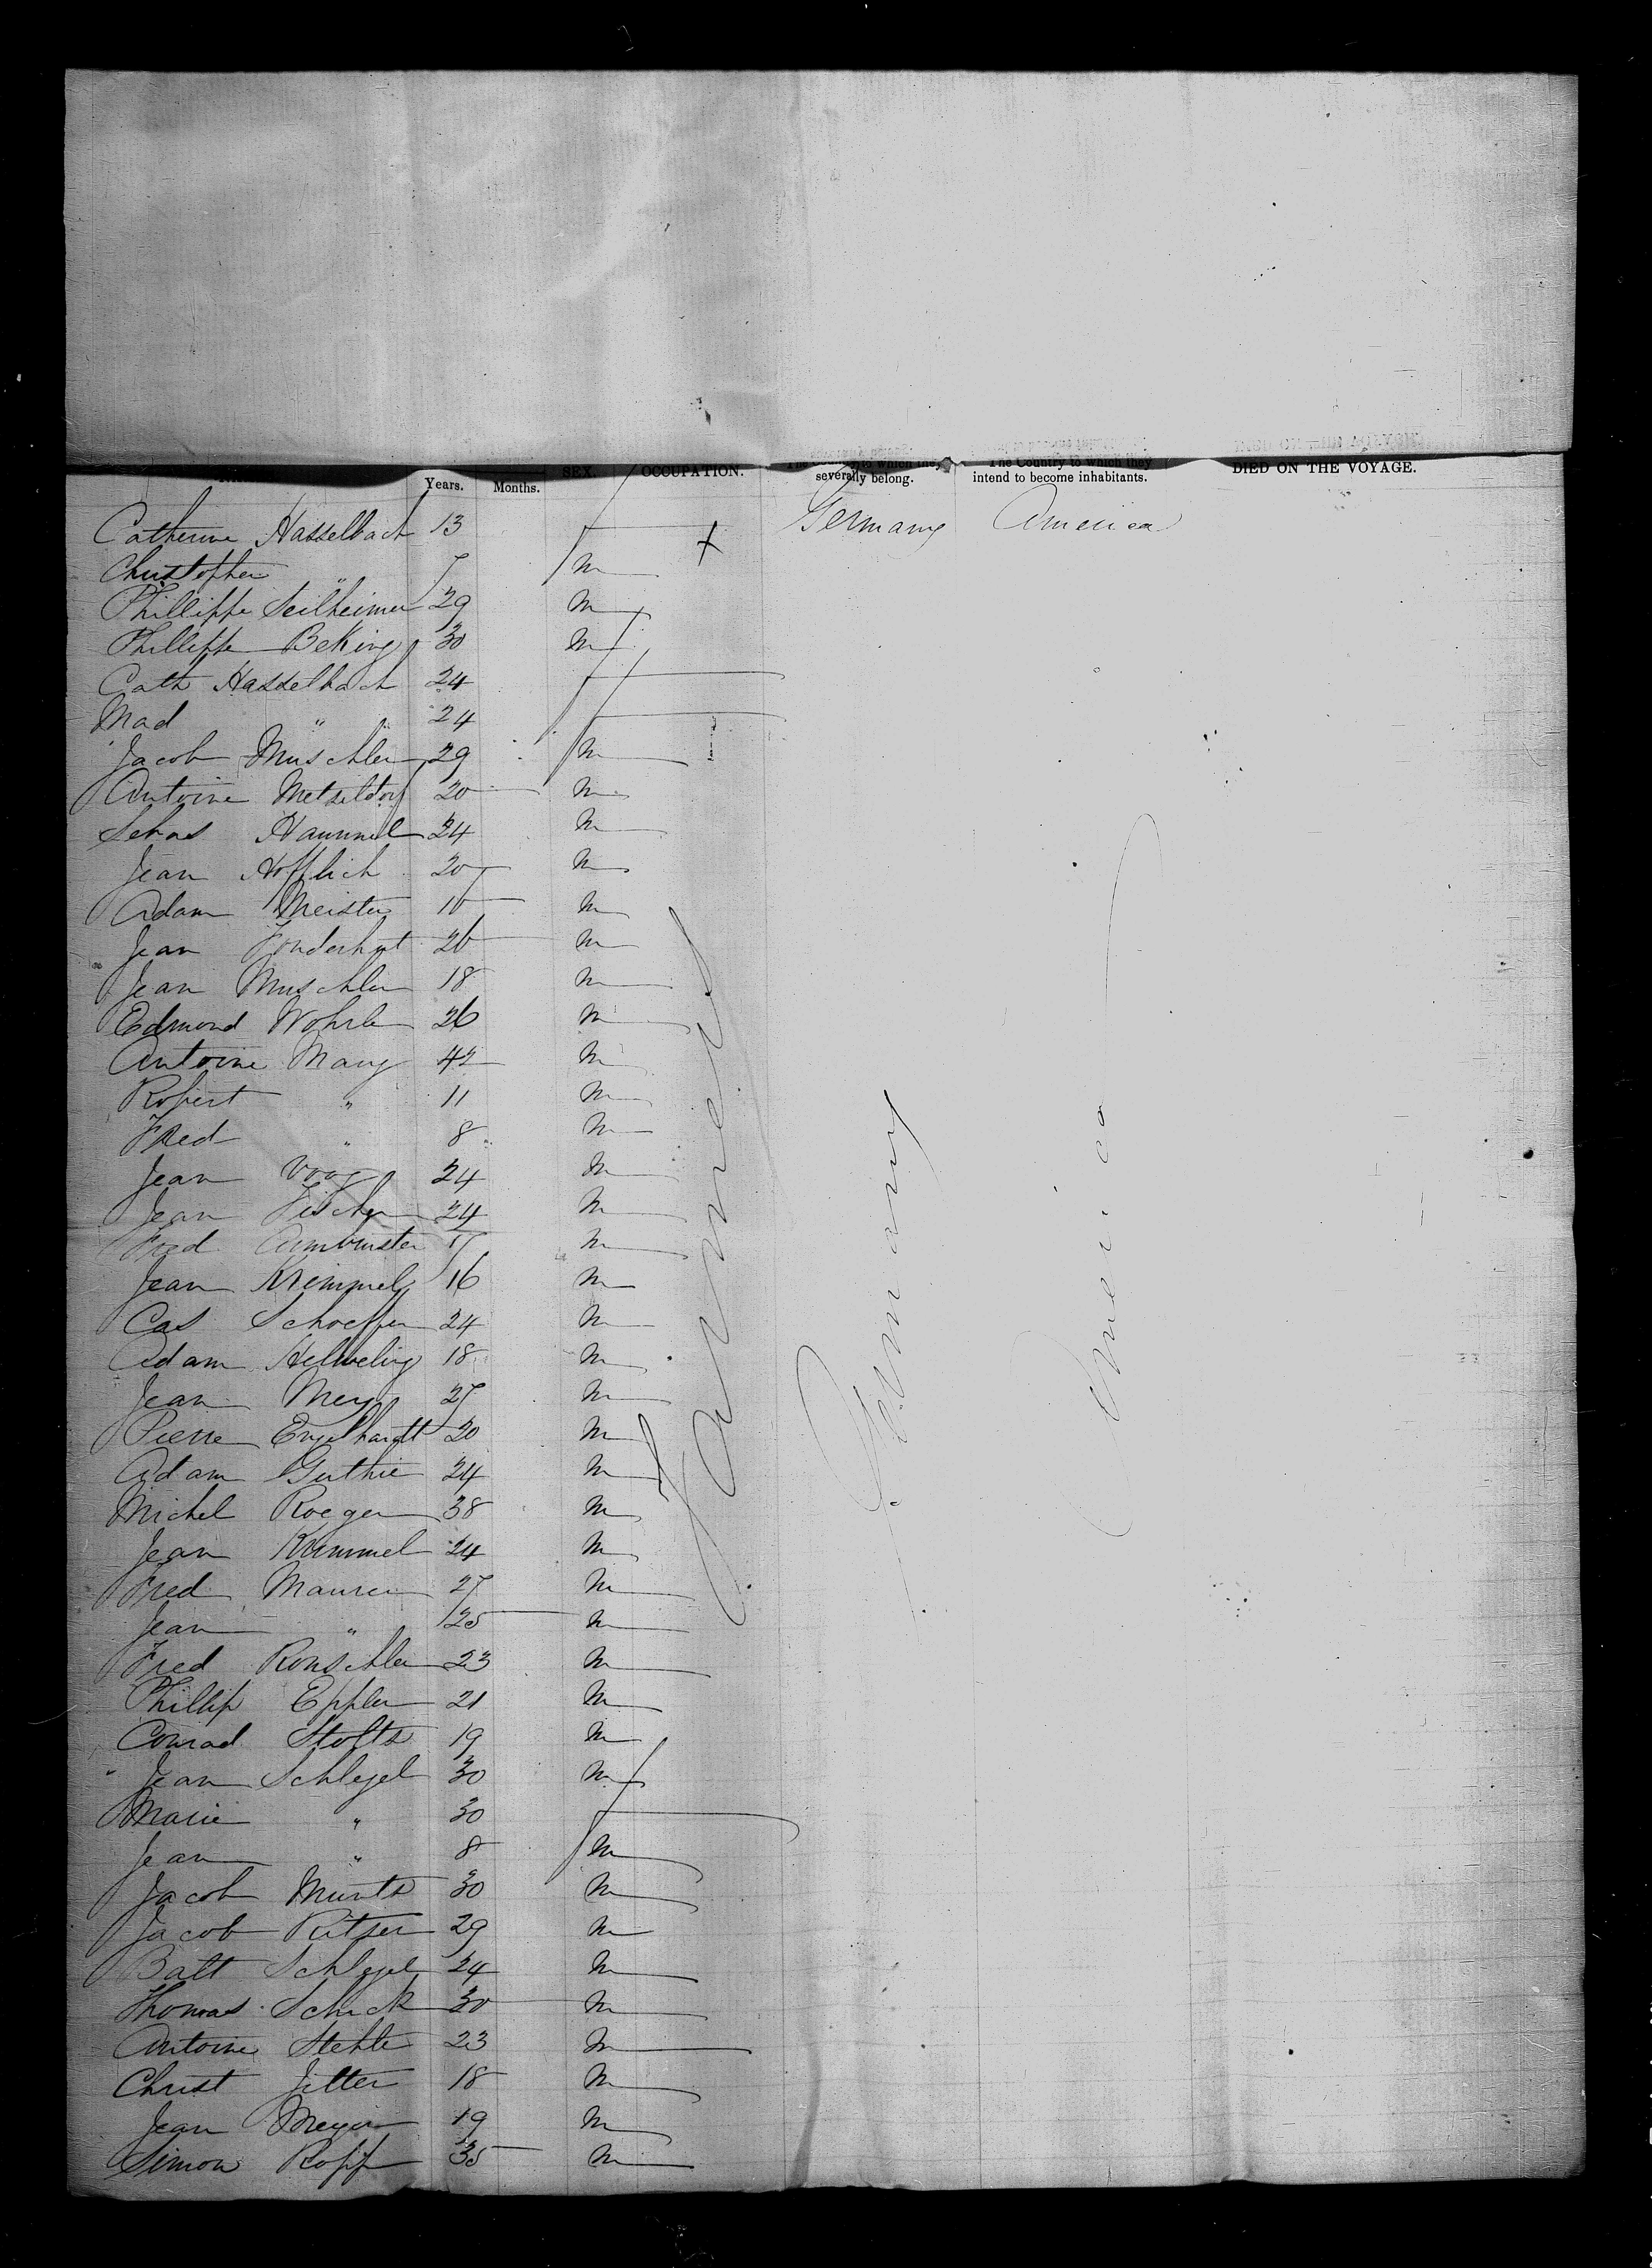 Years. Months. SEX. OCCUPATION. The Country to which they severally belong. The Country to which they intend to become inhabitants. DIED ON THE VOYAGE.
Catherine Hasselbach 13 f Germany America
Christopher " 7 m
Phillippe Seilheimer 29 m
Phillippe BeKing 30 m
Cath Hasselbach 24 f
Mad " 24 f
Jacob Muschler 29 m
Antoine Metzeldorf 20 m
Sebas Hammel 24 m
Jean Hofflich 20 m
Adam Meister m
Jean m
Jean Muschler 18 m
Edmond Wohrle 26 m
Antoine Mang 42 m
Robert " 11 m
Fred " 8 m
Jean Voog 24 m
Jean Fischer 24 m
Fred Armbruster m
Jean Kremmel 16 m
Cas Schoeffer 24 m
Adam Helweling 18 m
Jean Mey 27 m
Pierre Engelhardt 20 m
Adam Guthie 24 m
Michel Roeger 38 m
Jean Krummel 24 m
Fred Maurer 27 m
Jean " 25 m
Fred Ronschler 23 m
Phillip Eppler 21 m
Conrad Stolts 19 m
Jean Schlegel 30 m
Marie " 30 f
Jean " 8 m
Jacob Munts 30 m
Jacob Ritser 29 m
Balt Schlegel 24 m
Thomas Schick 30 m
Antoine Stehle 23 m
Christ Jetter 18 m
Jean Meyer 19 m
Simon Kopp 35 m
Farmers
Germany
America